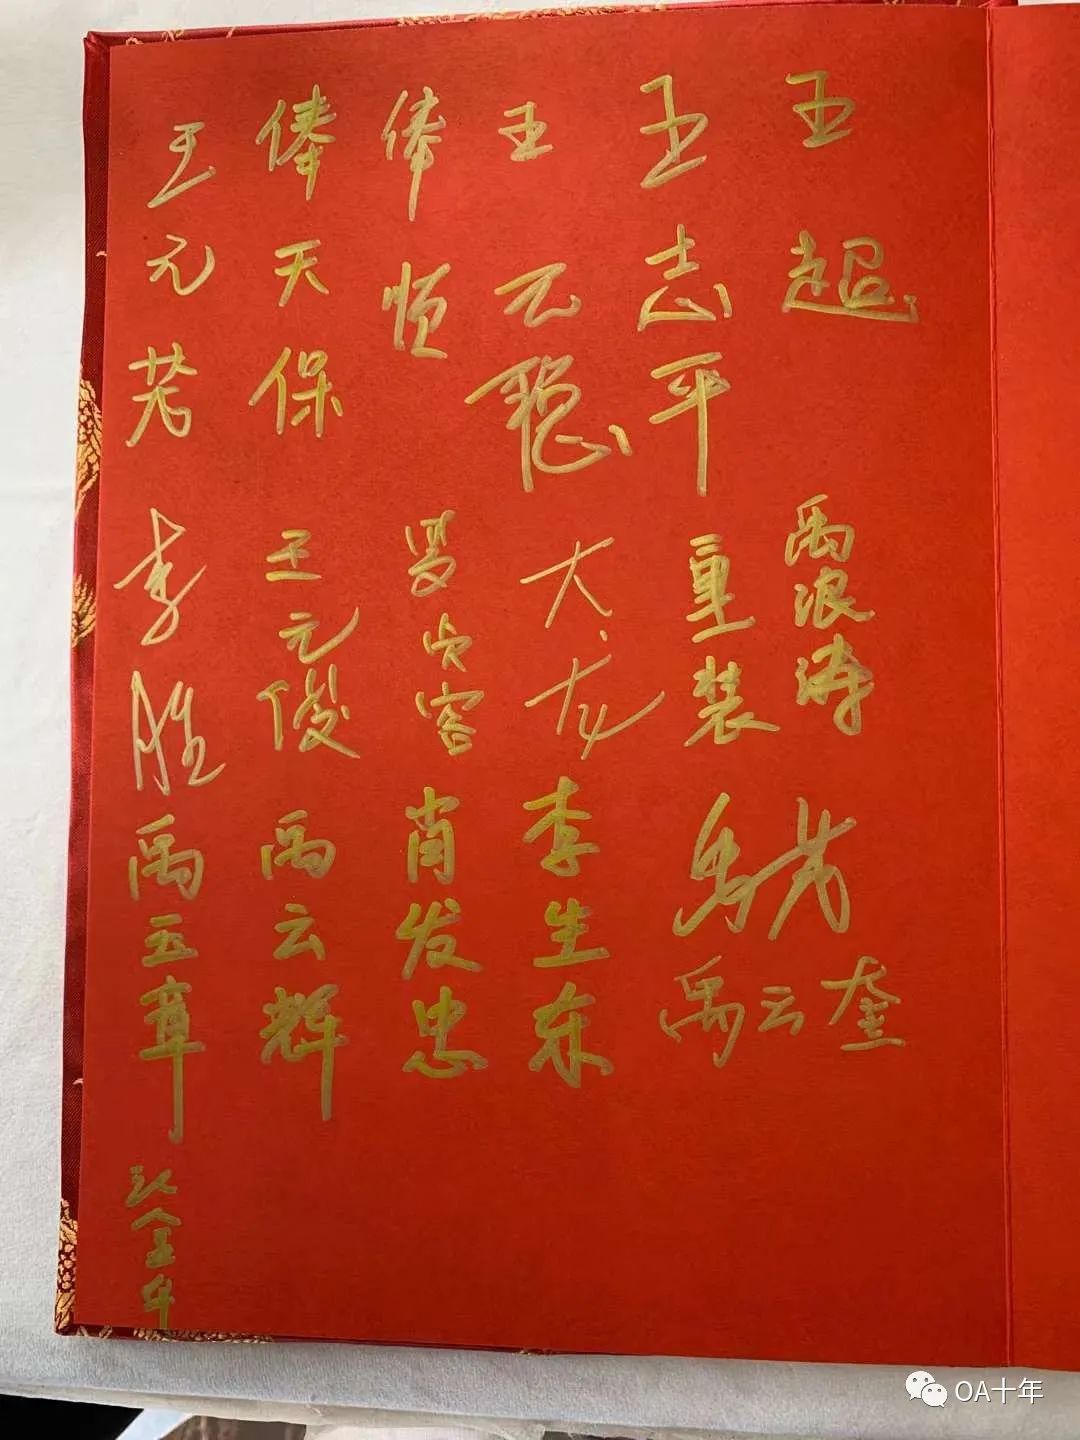 王超
王志平
王云稳
俸恒
俸天保
王元芳
禹浪涛
重装
大龙
罗少容
王元俊
李胜
禹云奎
李生东
肖发忠
禹云辉
禹玉章
OA十年